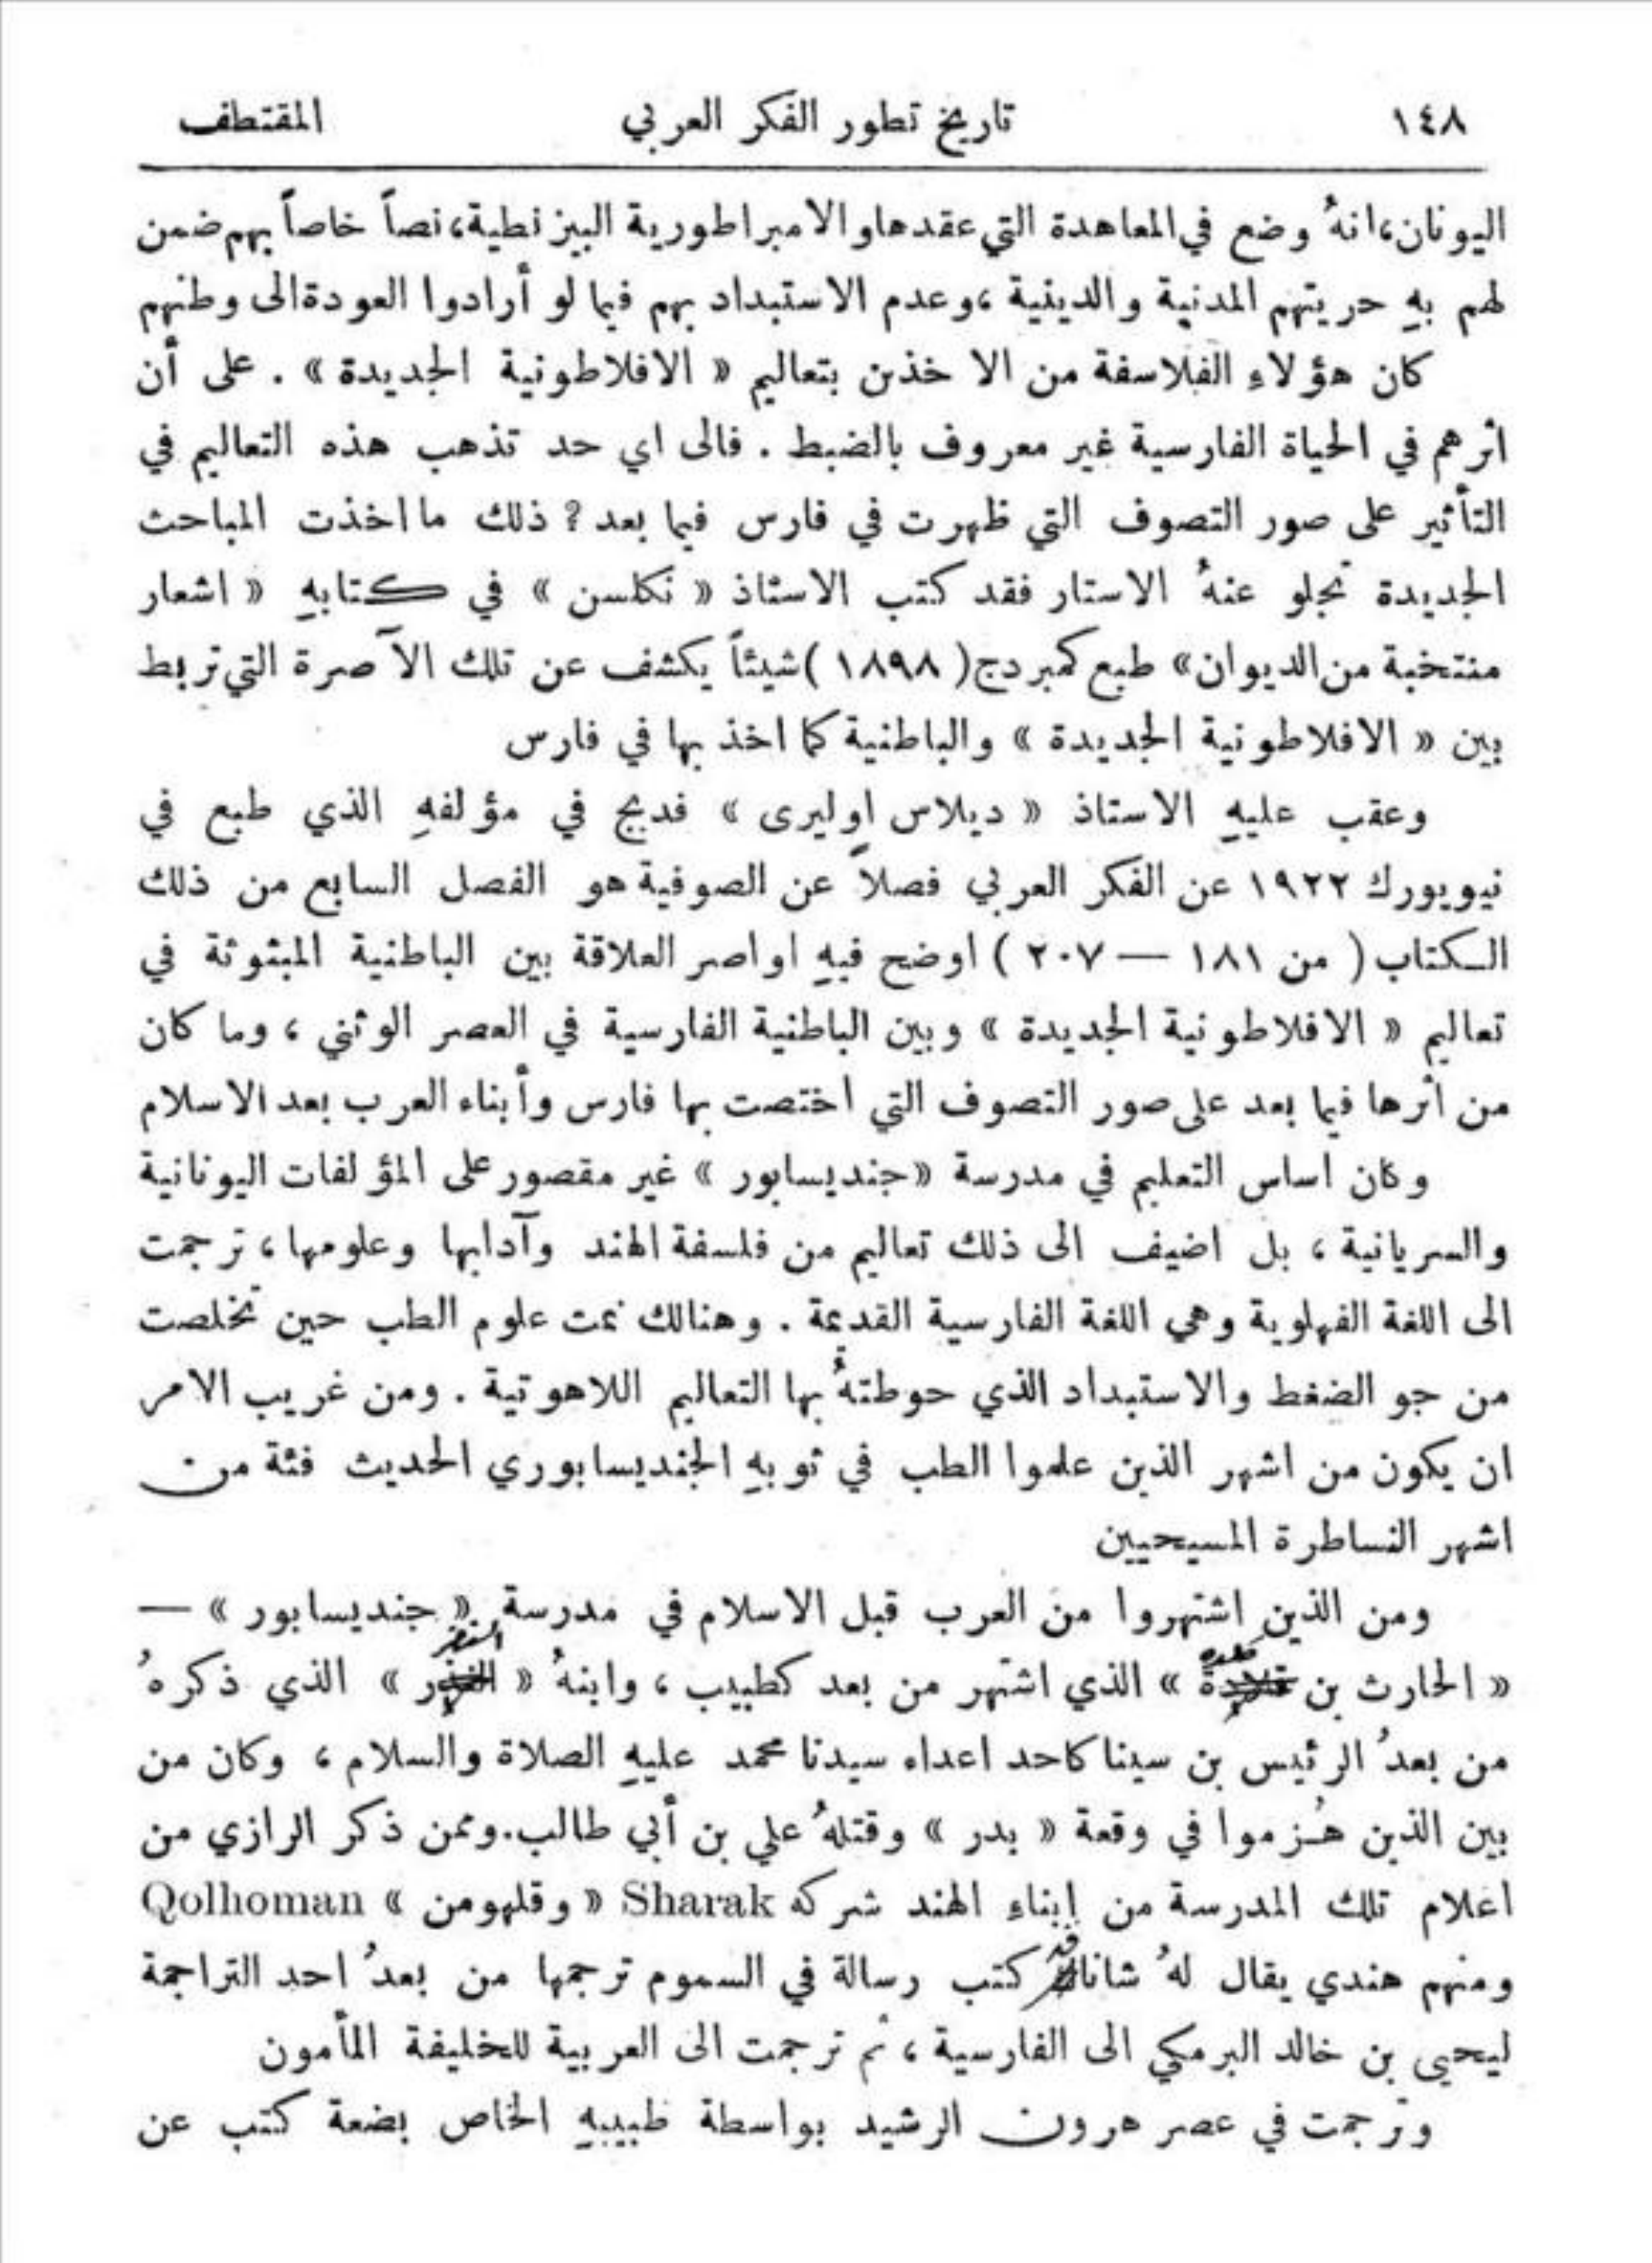 ١٤٨ تاريخ تطور الفكر العربي المقتطف
اليونان، انهُ وضع في المعاهدة التي عقدها والامبراطورية البيزنطية، نصاً خاصاً بهم ضمن
لهم بهِ حريتهم المدنية والدينية، وعدم الاستبداد بهم فيما لو أرادوا العودة الى وطنهم
كان هؤلاءِ الفلاسفة من الآخذين بتعاليم « الافلاطونية الجديدة » . على أن
اثرهم في الحياة الفارسية غير معروف بالضبط . فالى اي حد تذهب هذه التعاليم في
التأثير على صور التصوف التي ظهرت في فارس فيما بعد ? ذلك ما اخذت المباحث
الجديدة تجلو عنهُ الاستار فقد كتب الاستاذ « نكلسن » في كتابهِ « اشعار
منتخبة من الديوان » طبع كمبردج ( ١٨٩٨ ) شيئاً يكشف عن تلك الآصرة التي تربط
بين « الافلاطونية الجديدة » والباطنية كما اخذ بها في فارس
وعقب عليهِ الاستاذ « ديلاس اوليرى » فدبج في مؤلفهِ الذي طبع في
نيويورك ١٩٢٢ عن الفكر العربي فصلاً عن الصوفية هو الفصل السابع من ذلك
الكتاب ( من ١٨١ — ٢٠٧ ) اوضح فيهِ اواصر العلاقة بين الباطنية المبثوثة في
تعاليم « الافلاطونية الجديدة » وبين الباطنية الفارسية في العصر الوثني ، وما كان
من أثرها فيما بعد على صور التصوف التي اختصت بها فارس وأبناء العرب بعد الاسلام
وكان اساس التعليم في مدرسة « جنديسابور » غير مقصور على المؤلفات اليونانية
والسريانية ، بل اضيف الى ذلك تعاليم من فلسفة الهند وآدابها وعلومها ، ترجمت
الى اللغة الفهلوية وهي اللغة الفارسية القديمة . وهنالك نمت علوم الطب حين تخلصت
من جو الضغط والاستبداد الذي حوطتهُ بها التعاليم اللاهوتية . ومن غريب الامر
ان يكون من اشهر الذين علموا الطب في ثوبهِ الجنديسابوري الحديث فئة من
اشهر النساطرة المسيحيين
ومن الذين اشتهروا من العرب قبل الاسلام في مدرسة « جنديسابور » —
« الحارث بن كلدة » الذي اشتهر من بعد كطبيب ، وابنهُ « النضر » الذي ذكرهُ
من بعدُ الرئيس بن سينا كاحد اعداء سيدنا محمد عليهِ الصلاة والسلام ، وكان من
بين الذين هُزموا في وقعة « بدر » وقتلهُ علي بن أبي طالب. وممن ذكر الرازي من
اعلام تلك المدرسة من إبناءِ الهند شركه Sharak « وقلهومن » Qolhoman
ومنهم هندي يقال لهُ شاناق كتب رسالة في السموم ترجمها من بعدُ احد التراجمة
ليحيى بن خالد البرمكي الى الفارسية ، ثم ترجمت الى العربية للخليفة المأمون
وترجمت في عصر هرون الرشيد بواسطة طبيبهِ الخاص بضعة كتب عن